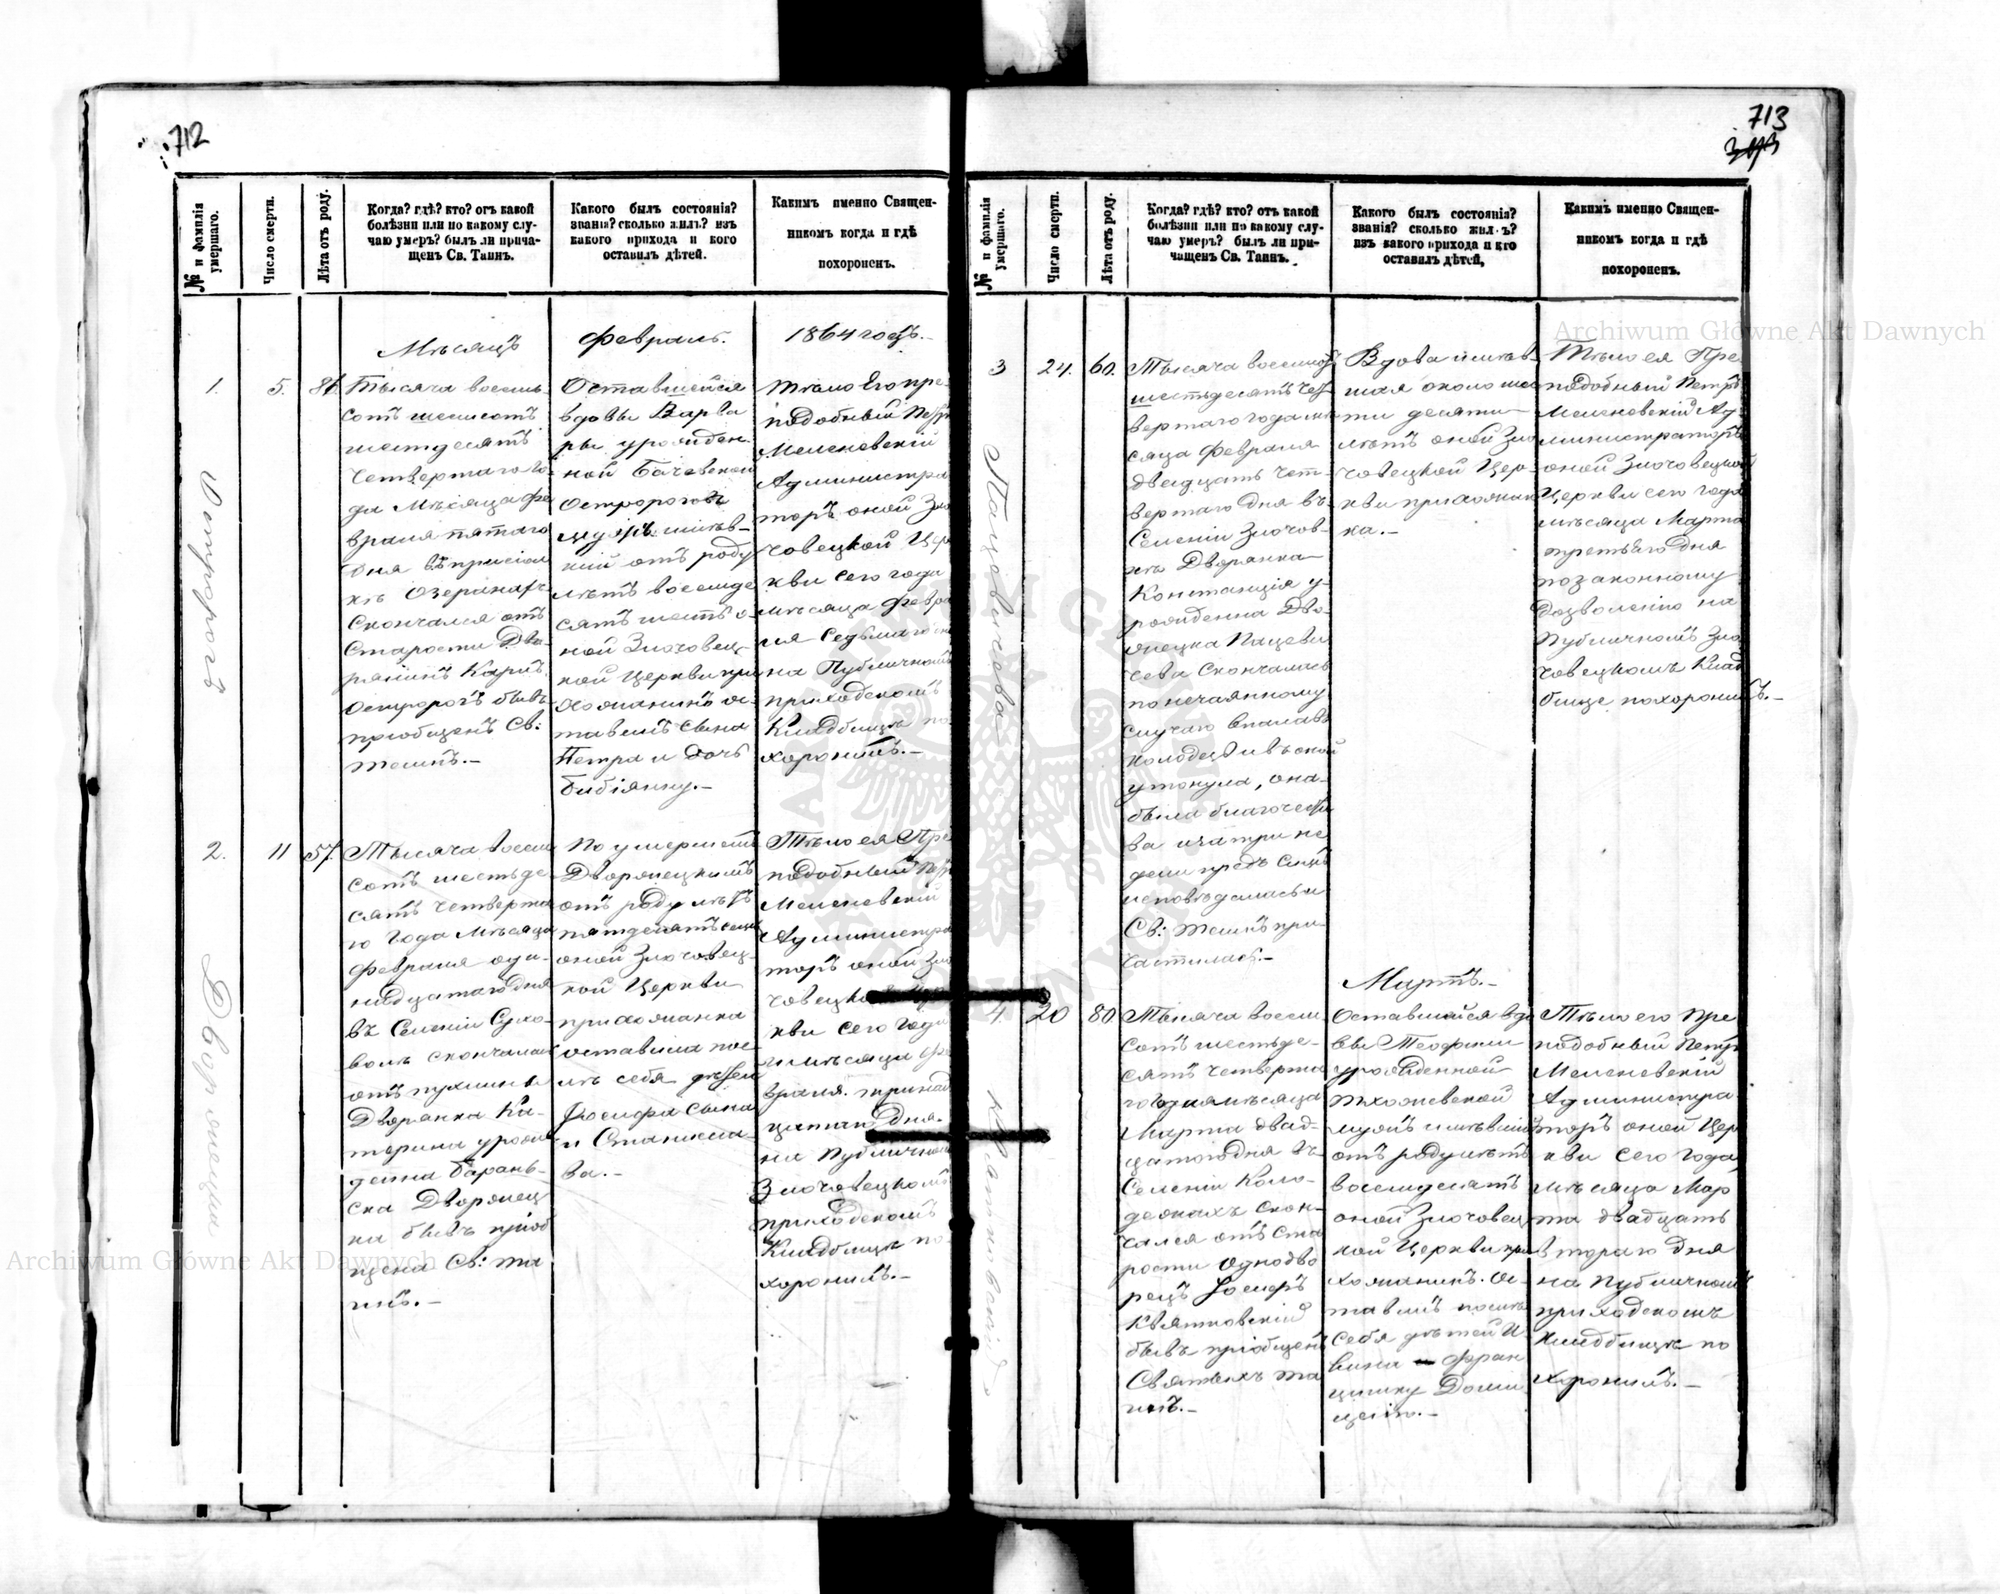 712
№ и фамилія умершаго.
Число смерти.
Лѣта отъ роду.
Когда? гдѣ? кто? отъ какой
болѣзни или по какому слу-
чаю умеръ? былъ ли прича-
щенъ Св. Таинъ.
Какого былъ состоянія?
званія? сколько жилъ? изъ
какого прихода и кого
оставилъ дѣтей.
Какимъ именно Священ-
никомъ когда и гдѣ
похороненъ.
Мѣсяцъ Февраль. 1864 годъ.
1.
Остророгъ
5.
86
Тысяча восемь
сотъ шесьсотъ
шестдесятъ
Четвертаго го-
да Мѣсяца Фе
враля пятаго
дня въ присiол
кѣ Озеранахъ
Скончался отъ
Старости Дво
рянинъ Карлъ
Остророгъ бывъ
пріобщенъ Св:
таинъ.–
Оставшейся
вдовы Варва
ры урожден-
ной Бачевской
Остророгов
мужъ имѣв-
ший отъ роду
лѣтъ восемде
сятъ шесть о-
ной Злочовец-
кой Церкви при
хожанинъ ос-
тавилъ сына
Петра и дочь
Бибіянну.–
Тѣло Его пре-
подобный Петръ
Меленевскій
Администра
торъ оной Зло
човецкой Цер
кви сего года
мѣсяца Февра
ля Седьмаго дн
на Публичномъ
приходскомъ
Кладбищѣ по
хоронилъ.–
2.
Дворжецка
11
57.
Тысяча восем
сотъ шестьде
сятъ четверта
го года Мѣсяца
Февраля оди-
надцатаго дня
въ Селеніи Сухо-
волѣ скончалась
отъ пухлины
Дворянка Ка-
тарина урож
денна Барань-
ска Дворжец
ка бывъ пріоб
щена Св: та
инъ.–
По умершемъ
Дворжецкимъ
отъ роду лѣтъ
пятдесятъ семь
оной Злочовец-
кой Церкви
прихожанка
оставила пос-
лѣ себя дѣтей
Іосифа сына
и Станисла-
ва.–
Тѣло ея Пре
подобный Петръ
Меленевскій
Администра
торъ оной Зло
човецкой Цер
кви сего года
мѣсяца Фе
враля тринад
цатаго дня
на Публичномъ
Злочовецкомъ
приходскомъ
Кладбищѣ по
хоронилъ.–
713
№ и фамилія умершаго.
Число смерти.
Лѣта отъ роду.
Когда? гдѣ? кто? отъ какой
болѣзни или по какому слу-
чаю умеръ? былъ ли при-
чащенъ Св. Таинъ.
Какого былъ состоянія?
званія? сколько жилъ?
изъ какого прихода и кго
оставилъ дѣтей,
Какимъ именно Священ-
никомъ когда и гдѣ
похороненъ.
3
Пацевичева
24.
60.
Тысяча восемсотъ
шестьдесятъ чет
вертаго года мѣ
сяца Февраля
двадцать чет-
вертаго дня въ
Селеніи Злочов-
кѣ Дворянка
Констанція у-
рожденна Дво-
ржецка Пацеви
чева Скончалась
по нечаянному
случаю впалавъ
колодезь и въ оной
утонула, она
была благочести
ва и за три не
дели предъ симъ
исповѣдалась и
Св: таинъ при
частилась.–
Вдова имѣв-
шая около шес
ти десяти
лѣтъ оной Зло
човецкой Цер-
кви прихожан
ка.–
Тѣло ея Пре
подобный Петръ
Меленевскій Ад-
министраторъ
оной Злочовецкой
Церкви сего года
мѣсяца Марта
третьяго дня
по законному
дозволенію на
Публичномъ Зло
човецкомъ Клад
бище похоронилъ.–
Мартъ.–
4.
Квятковскій
20
80
Тысяча восем
сотъ шестьде-
сятъ четверта
го года мѣсяца
Марта двад-
цатого дня въ
Селеніи Коло-
деонахъ скон-
чался отъ ста
рости Однодво
рецъ Іосифъ
Квятковскій
бывъ пріобщенъ
Святыхъ та
инъ.–
Оставшайся вдо
вы Теофили
урожденной
мужъ имѣвшій
отъ роду лѣтъ
восемдесятъ
оной Злочовец
кой Церкви при
хожанинъ. Ос-
тавилъ послѣ
себя дѣтей
Фран
цишку Доми
целію.–
Тѣло его Пре
подобный Петръ
Меленевскій
Администра
торъ оной Цер
кви сего года
мѣсяца Мар
та двадцать
втораго дня
на Публичномъ
приходскомъ
кладбищѣ по
хоронилъ.–
Archiwum Główne Akt Dawnych
Archiwum Główne Akt Dawnych